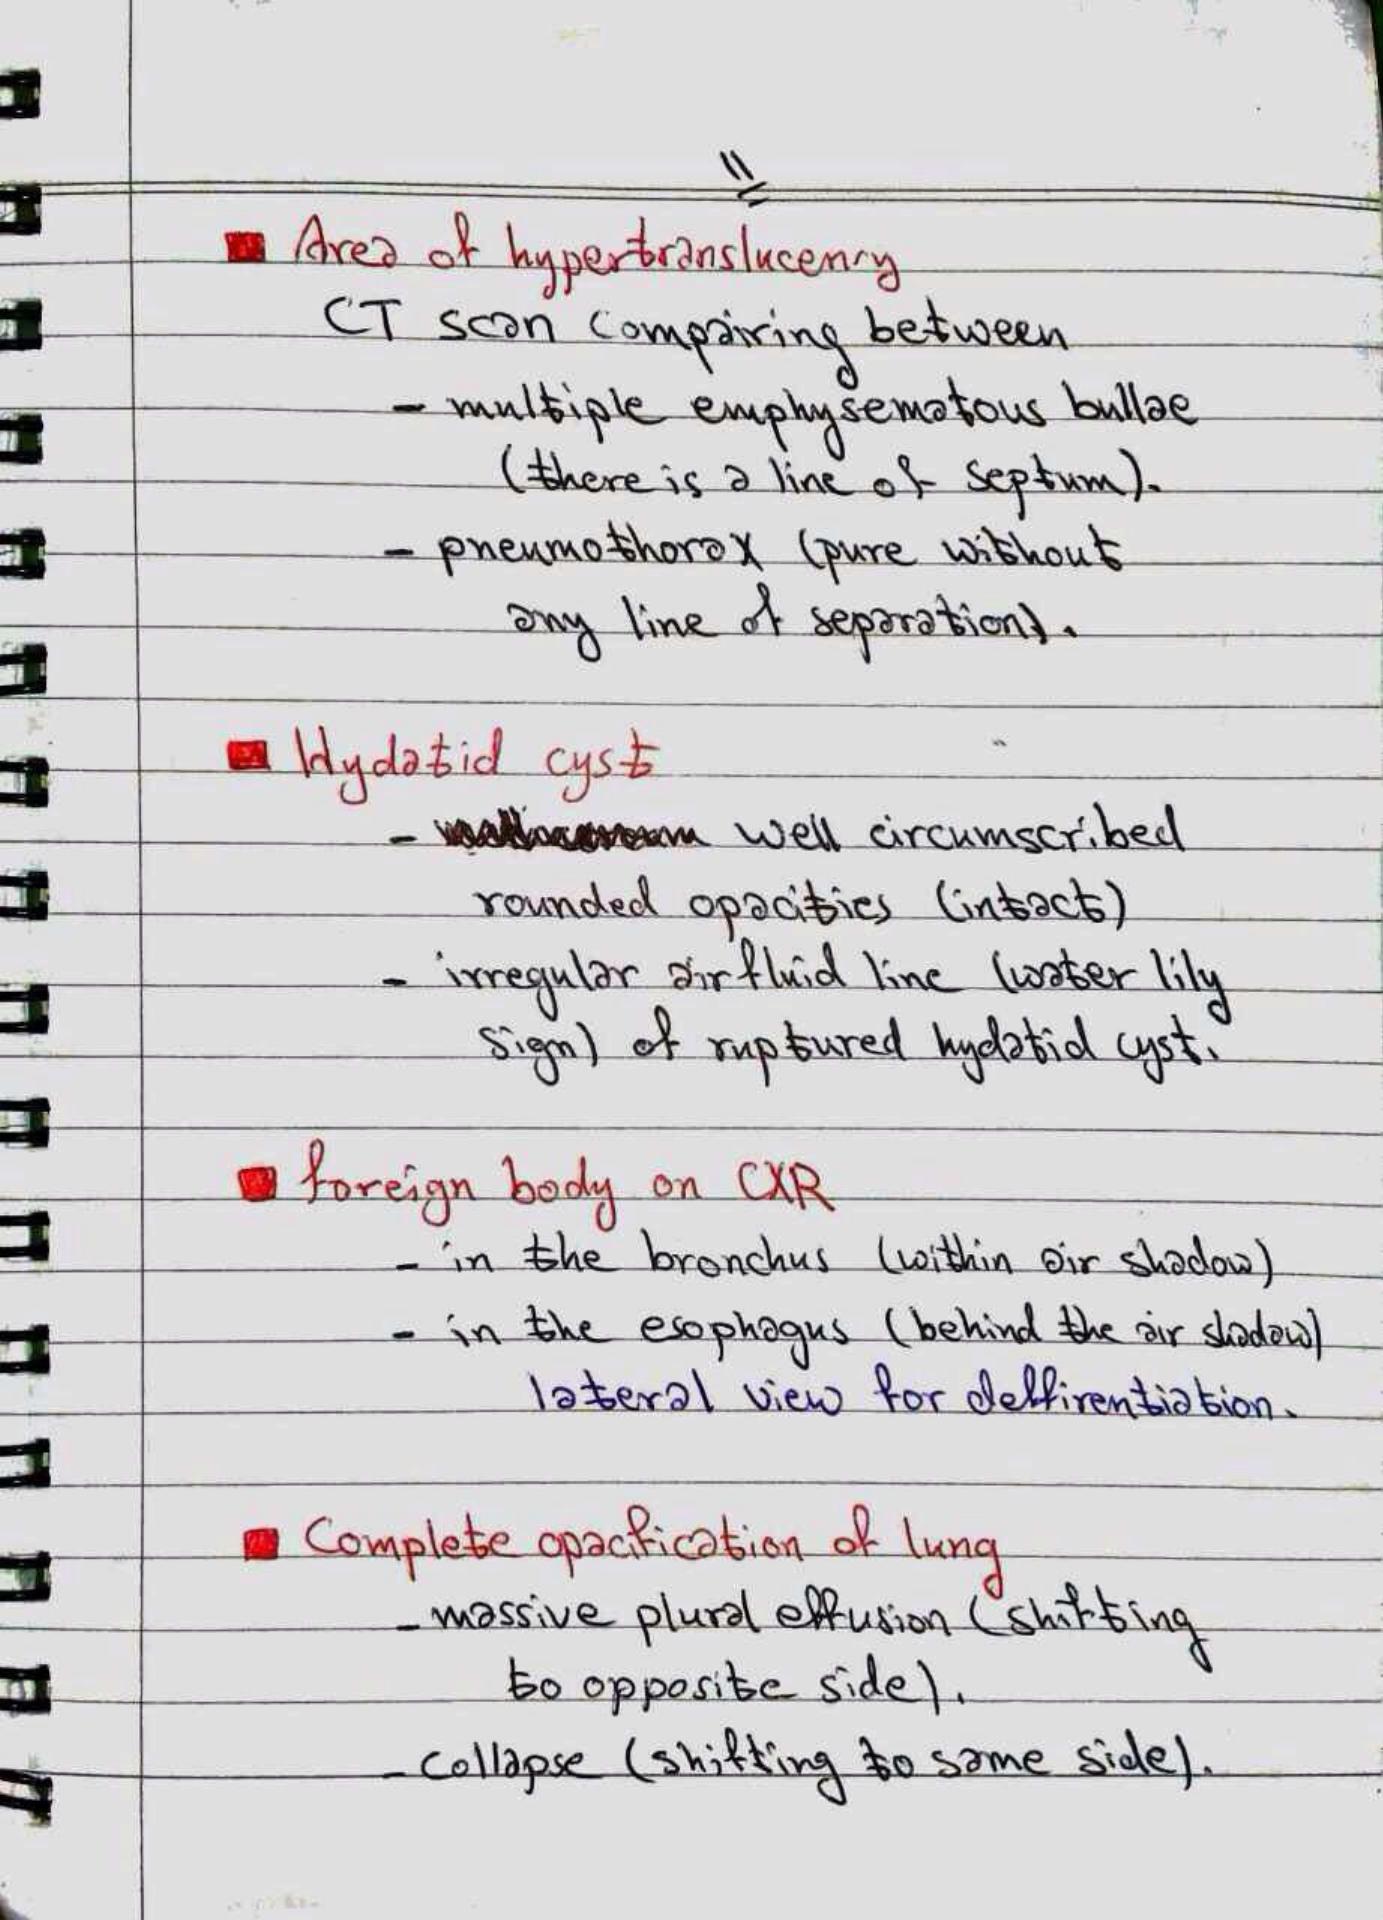 11
Area of hypertranslucency
CT scan compairing between
- multiple emphysematous bullae
(there is a line of septum).
- pneumothorax (pure without
any line of separation).
Hydatid cyst
- well circumscribed
rounded opacities (intact)
- irregular air fluid line (water lily
sign) of ruptured hydatid cyst.
foreign body on CXR
- in the bronchus (within air shadow)
- in the esophagus (behind the air shadow)
lateral view for deffirentiation.
Complete opacification of lung
- massive plural effusion (shifting
to opposite side).
- collapse (shifting to same side).